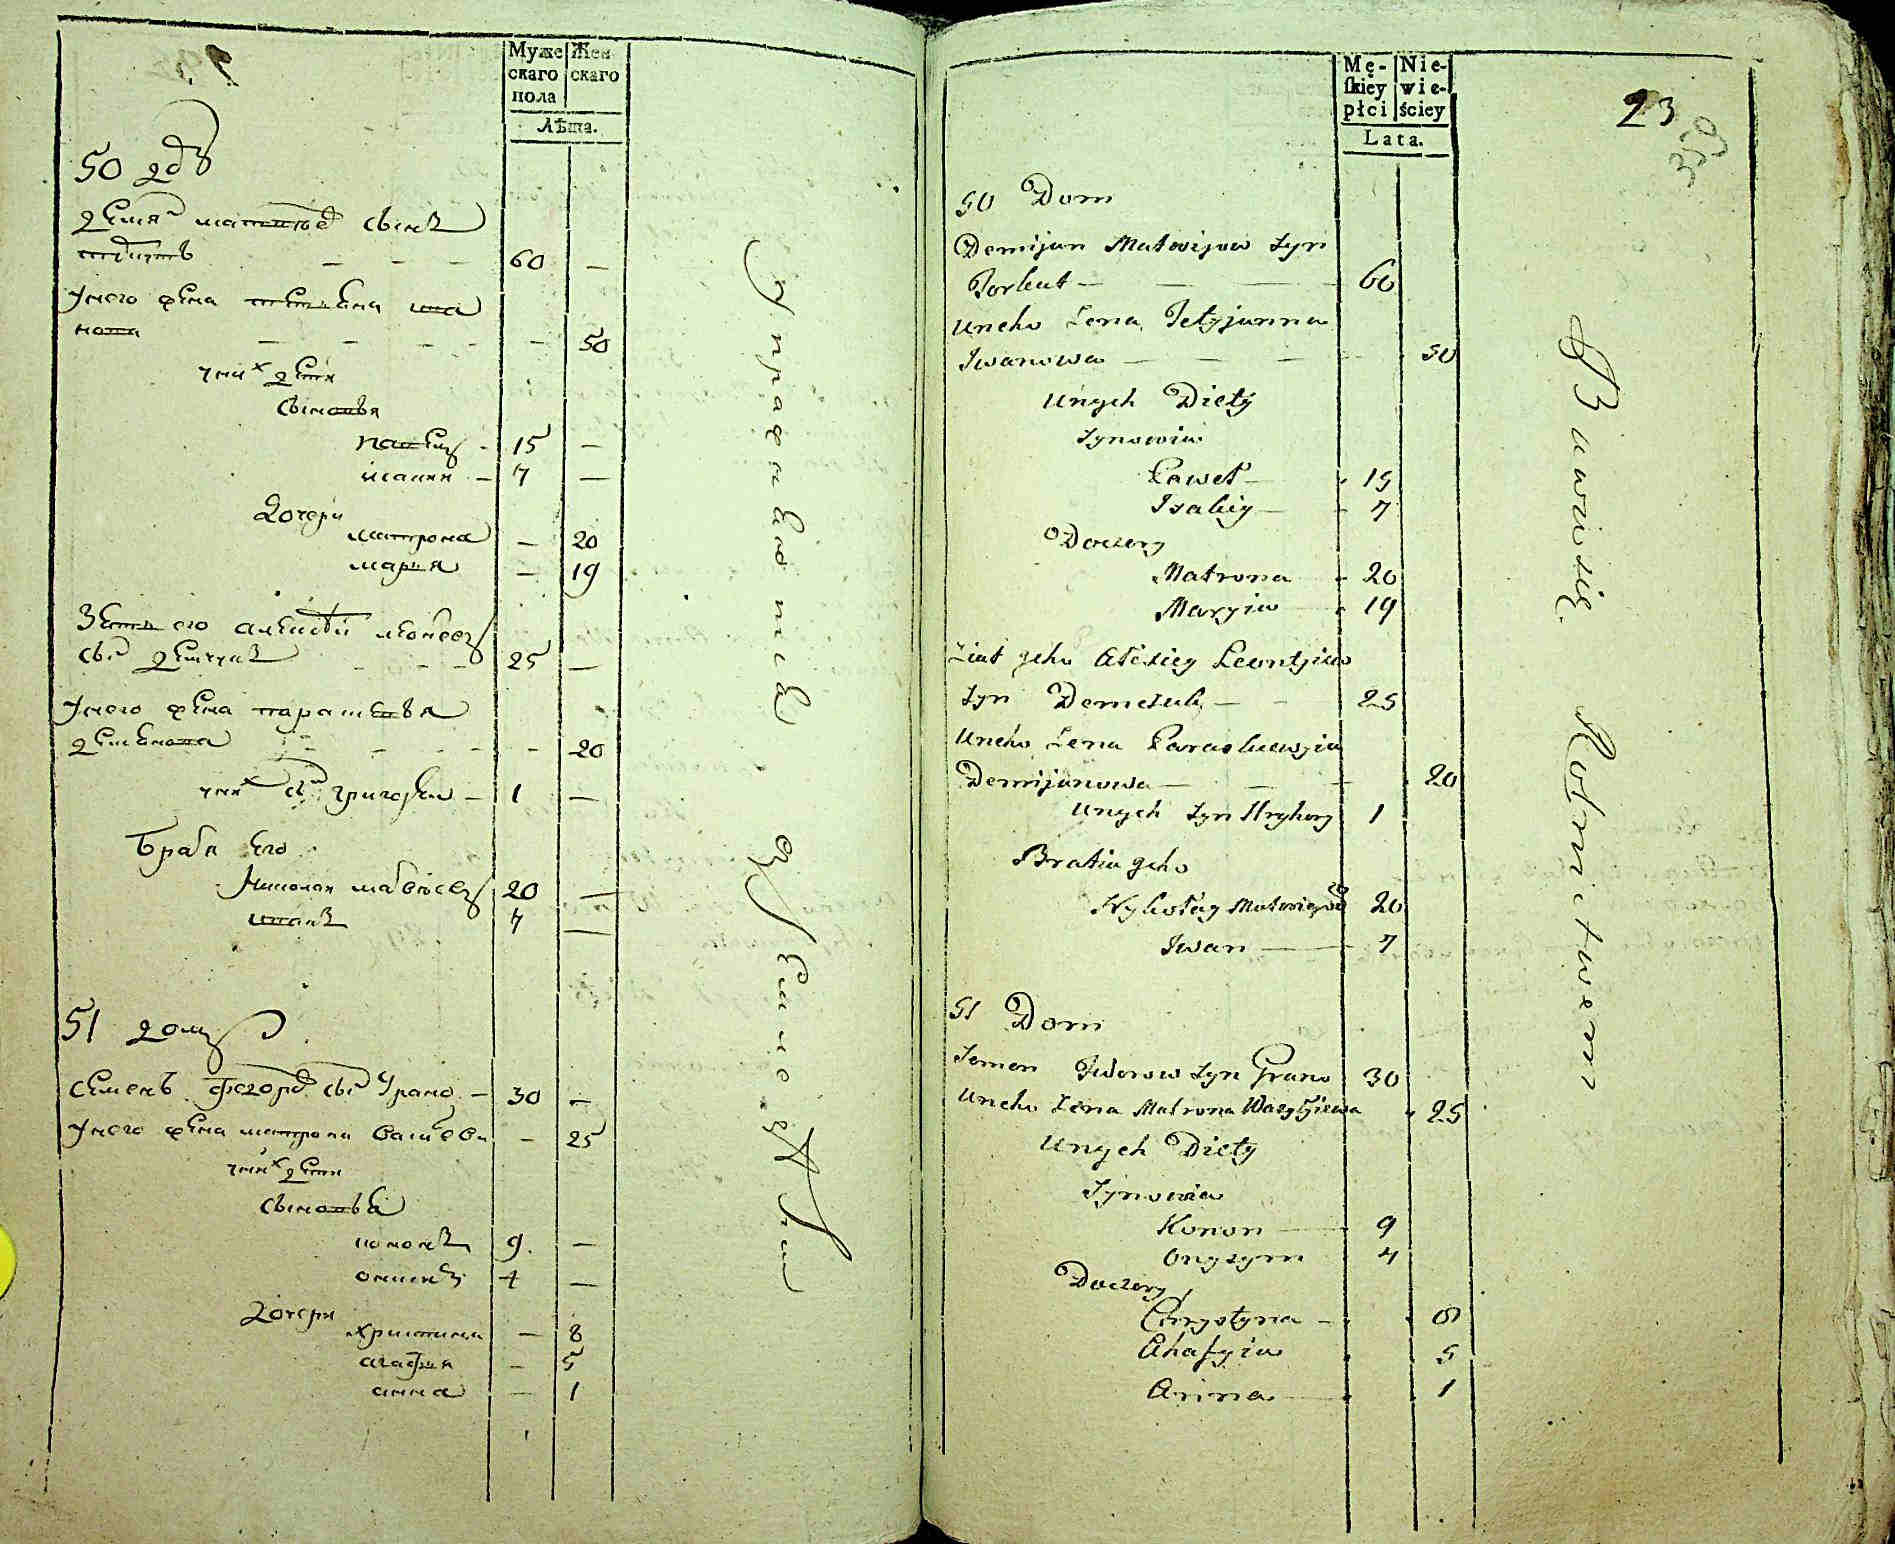 Муже
скаго
пола
Жен
скаго
Лѣта.
50 дв
Демян Матвѣев сынъ
60 —
У него жена Тетьяна Ива
нова
50
у них дѣти
сыновья
Павел 15 —
Исакий 7 —
дочери
Матрона — 20
Мария — 19
Зять его Алексѣй Леонтьев
сын Демчукъ 25 —
У него жена Парасковья
Демянова 20
у них сын Григорей 1 —
Братя его
Николай Матвѣев 20 —
Иванъ 7 —
51 домъ
Семенъ Федоров сын Грано 30 —
У него жена Матрона Васильева — 25
у них дѣти
сыновья
Кононъ 9 —
Онисим 4 —
дочери
Христина — 8
Агафия — 5
Анна — 1
Упражняются
Mę-
skiey
płci
Nie-
wie-
ściey
Lata.
23
359
50 Dom
Demijan Matwijow Syn
Torbut 60
Uneho Żena Tetyjanna
Iwanowa 50
Unych Diety
Synowia
Paweł 15
Isakiy 7
Doczery
Matrona 20
Maryia 19
Ziat jeho Ałexiey Leontyiew
Syn Demczuk 25
Uneho Żena Paraskiewyia
Demijanowa 20
Unych Syn Hryhory 1
Bratia jeho
Mykołay Matwiejow 20
Iwan 7
51 Dom
Semen Fedorow Syn Grano 30
Uneho Żena Matrona Wasylijewa 25
Unych Diety
Synowia
Konon 9
Onysym 4
Doczery
Chrystyna 8
Ahafyia 5
Anna 1
Bawią się Rolnictwem